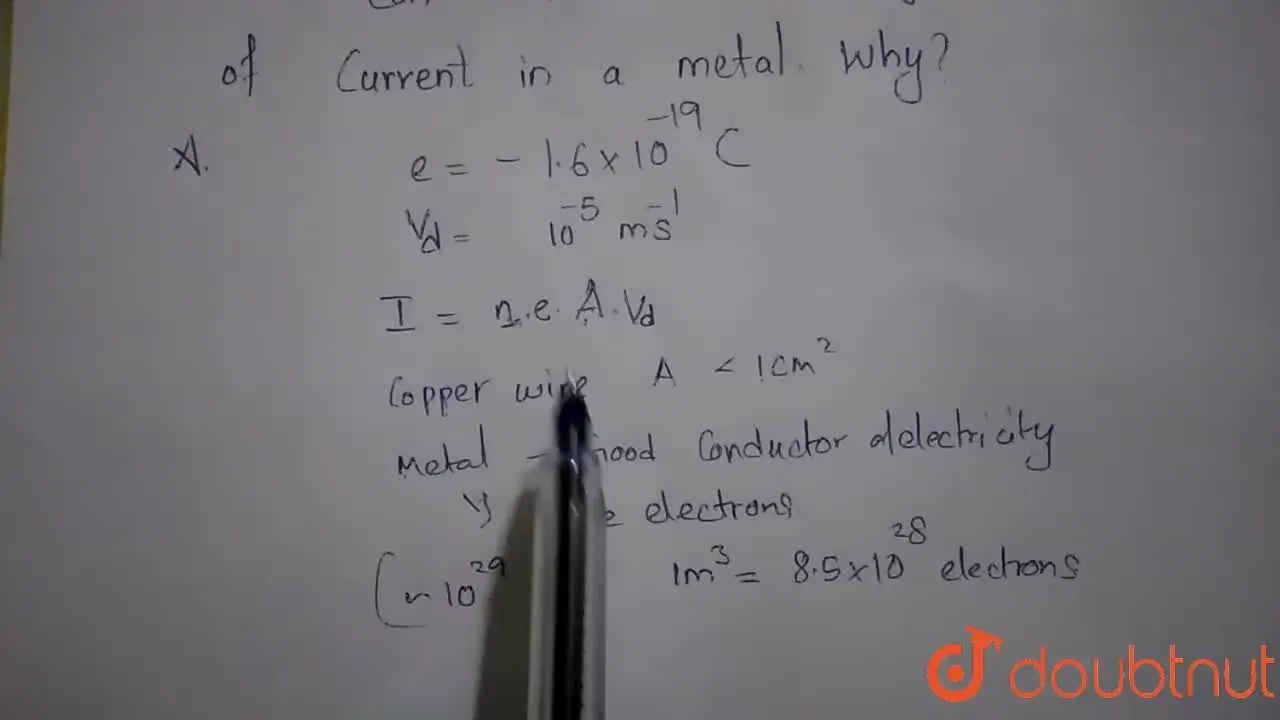 of Current in a metal. Why?
A. e = - 1.6 × 10⁻¹⁹ C
Vd = 10⁻⁵ ms⁻¹
I = n.e. A. Vd
Copper wire A < 1cm²
Metal - Good Conductor of electricity
electrons
~ 10²⁹ 1m³ = 8.5×10²⁸ electrons
doubtnut